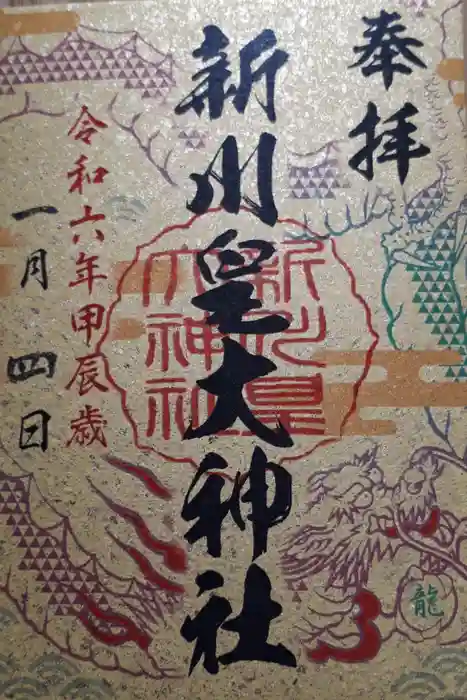 奉拝
新川皇大神社
新川皇大神社
令和六年甲辰歳
一月四日
龍